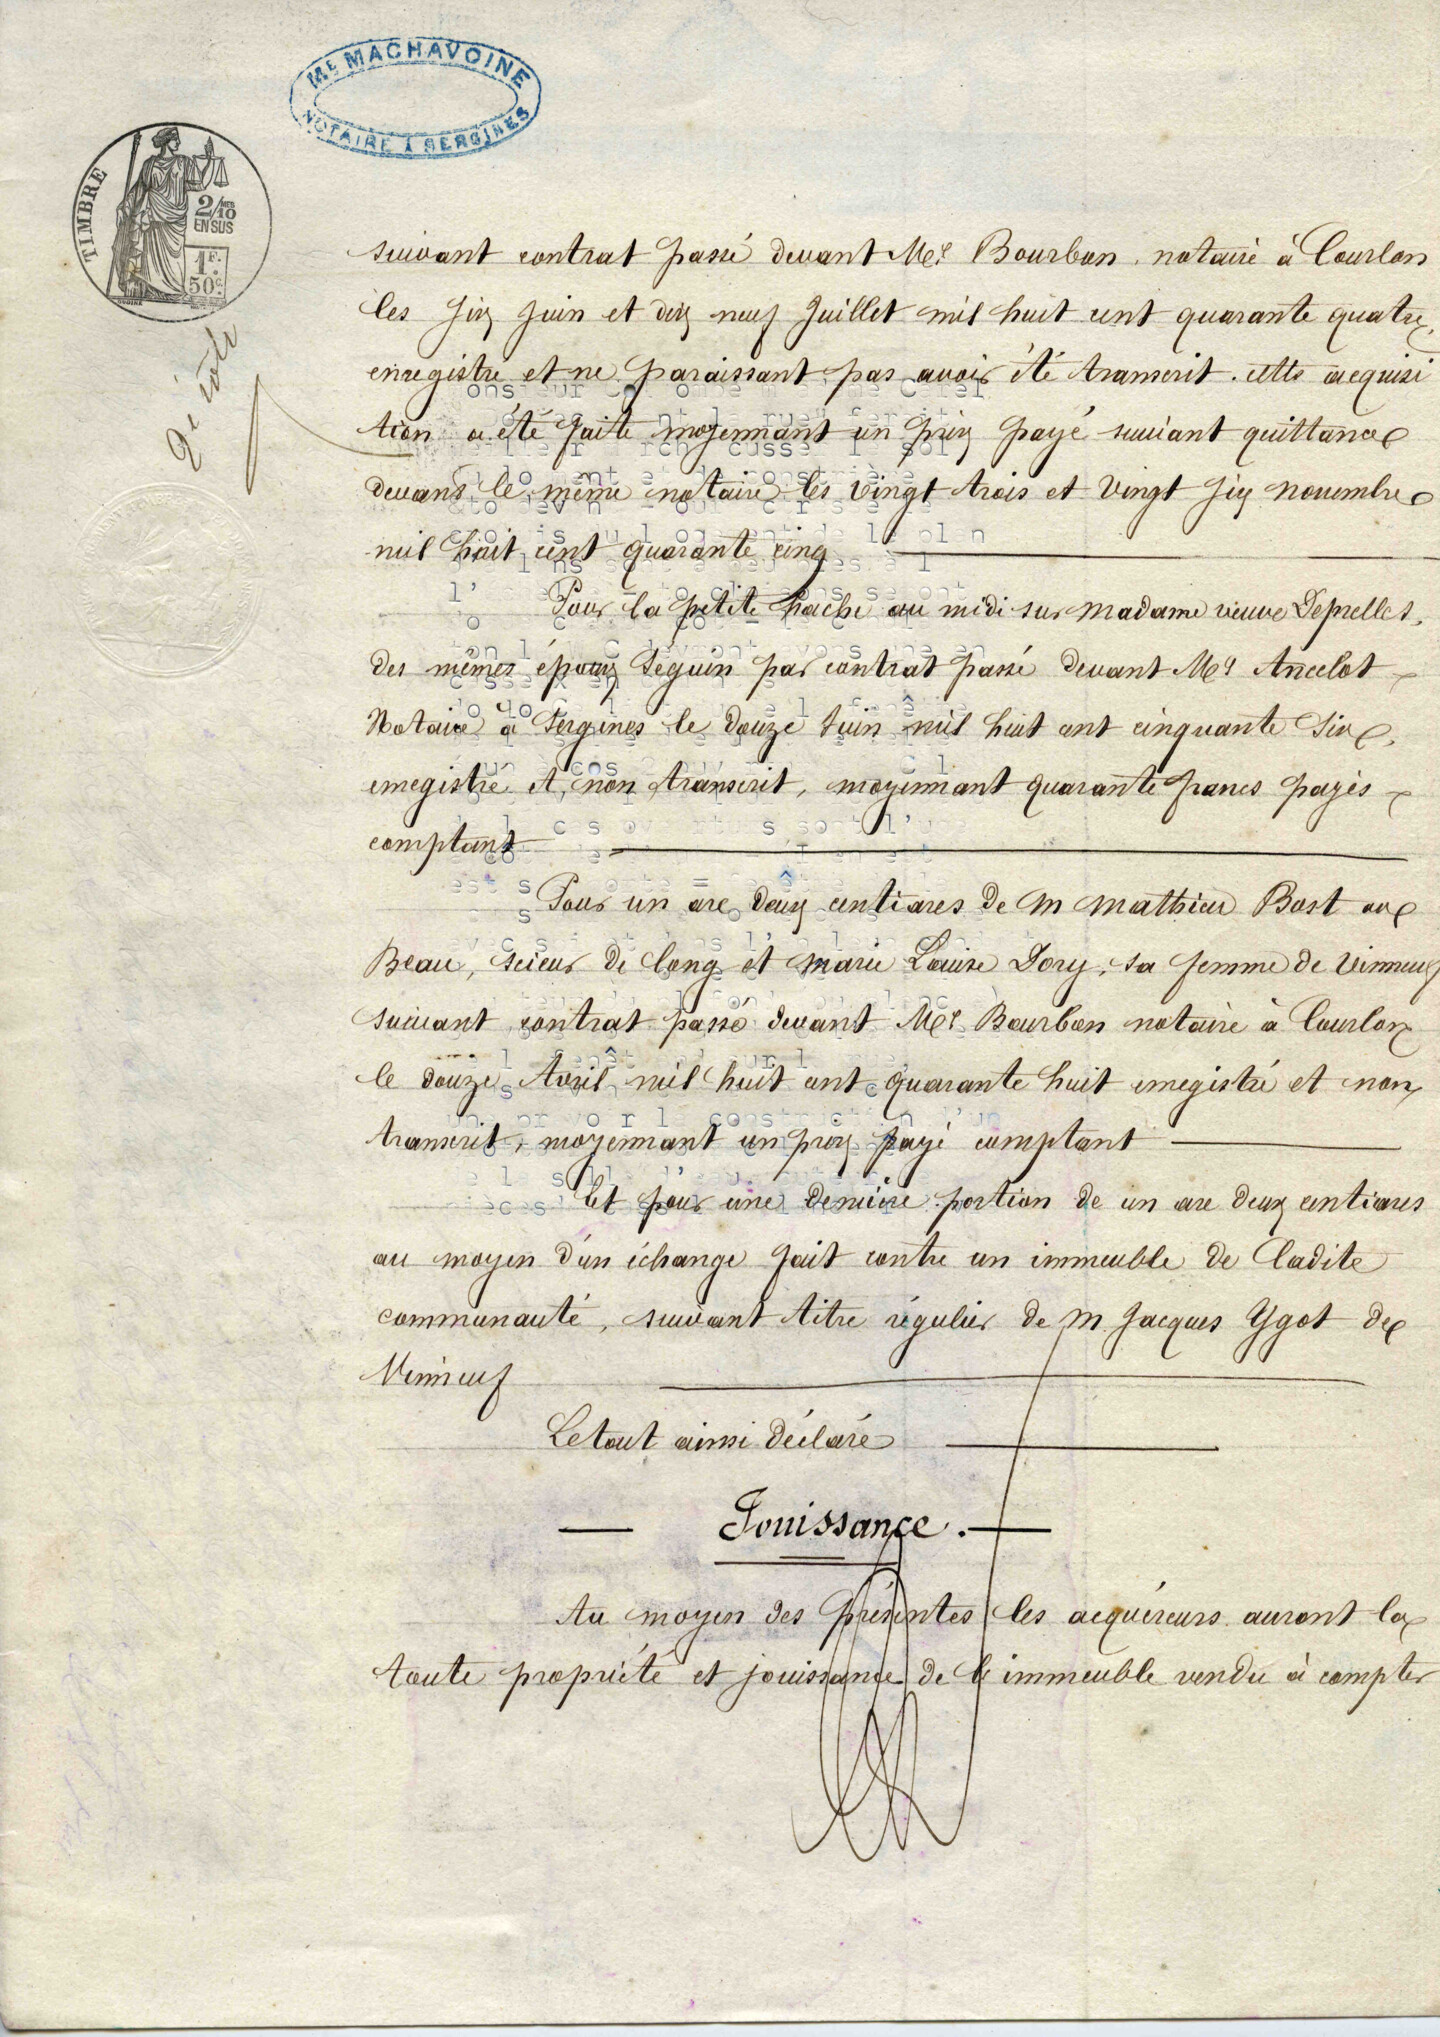 Me MACHAVOINE
NOTAIRE À SERGINES
TIMBRE
2/10mes
EN SUS
1F.
50c.
suivant contrat passé devant Me Bourbon, notaire à Courlon
les six Juin et dix neuf Juillet mil huit cent quarante quatre,
enregistré et ne paraissant pas avoir été transcrit. Cette acquisi
tion a été faite moyennant un prix payé suivant quittance
devant le même notaire les vingt trois et vingt six novembre
mil huit cent quarante cinq
Pour la petite hache au midi sur madame veuve
des mêmes époux Seguin par contrat passé devant Me Ancelot
Notaire à Sergines le douze Juin mil huit cent cinquante six,
enregistré et non transcrit, moyennant quarante francs payés
comptant
Pour un are deux centiares de M Mathieu Bost ou
Beau, scieur de long et Marie Louise Dory, sa femme de Vinneuf
suivant contrat passé devant Me Bourbon notaire à Courlon
le douze Avril mil huit cent quarante huit enregistré et non
transcrit, moyennant un prix payé comptant
Et pour une dernière portion de un are deux centiares
au moyen d'un échange fait contre un immeuble de ladite
communauté, suivant titre régulier de M Jacques Ygot de
Vinneuf
Le tout ainsi déclaré
Jouissance.
Au moyen des présentes les acquéreurs auront la
toute propriété et jouissance de l'immeuble vendu à compter